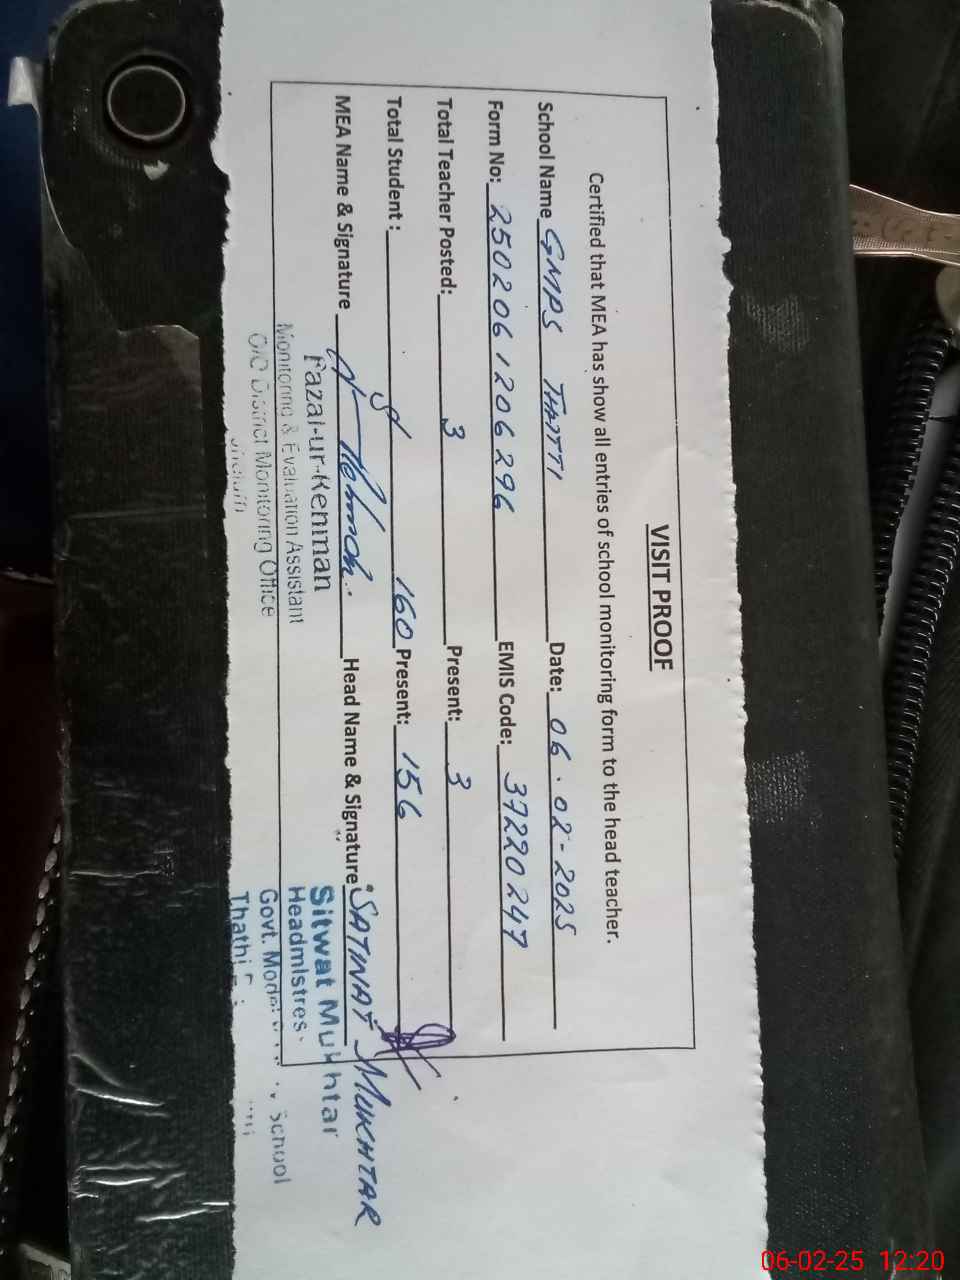 VISIT PROOF
Certified that MEA has show all entries of school monitoring form to the head teacher.
School Name GMPS THATTI Date: 06.02-2025
Form No: 2502061206296 EMIS Code: 37220247
Total Teacher Posted: 3 Present: 3
Total Student: 160 Present: 156
MEA Name & Signature Rehman Head Name & Signature SATWAT MUKHTAR
Fazal-ur-Rehman
Monitoring & Evaluation Assistant
O/O District Monitoring Office
Jhelum
Sitwat Mukhtar
Headmistres
Govt. Model School
Thathi
06-02-25 12:20